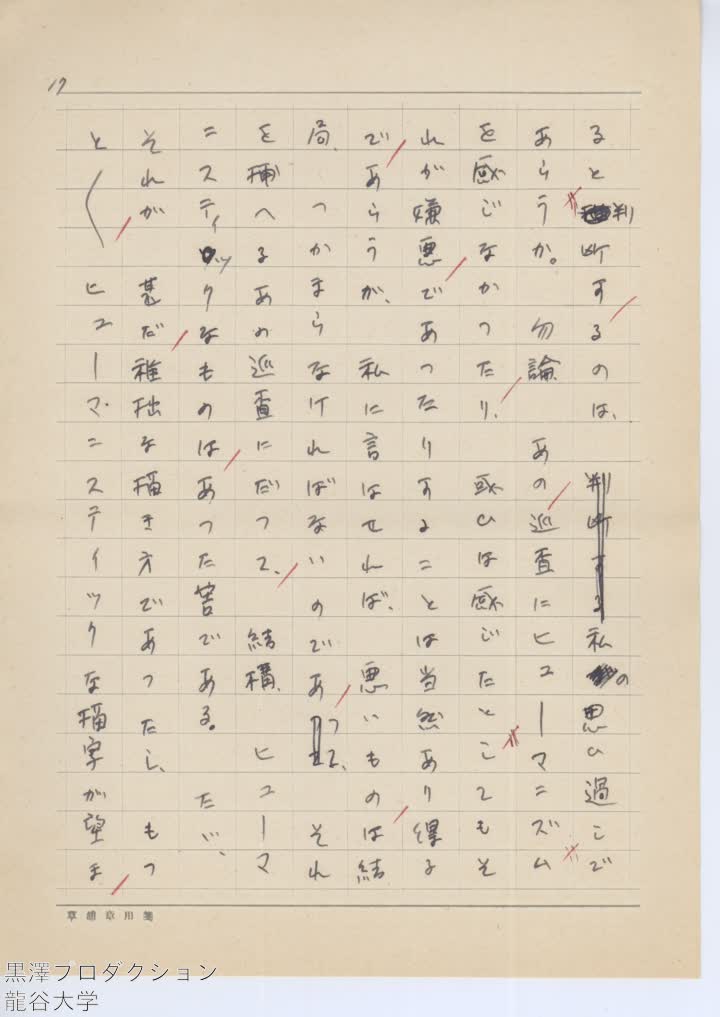 17
ると判断するのは、判断する私の思ひ過しで
あらうか。勿論あの巡査にヒユーマニズム
を感じなかつたり、或ひは感じたとしてもそ
れが嫌悪であつたりすることは当然あり得る
であらうが、私に言はせれば、悪いものは結
局、つかまらなければないのであつて、それ
を捕へるあの巡査にだつて、結構、ヒユーマ
ニスティックなものはあつた筈である。たゞ、
それが甚だ稚拙な描き方であつたし、もつ
と〱ヒユーマニスティツクな描写が望ま
草稿用章箋
黒澤プロダクション
龍谷大学